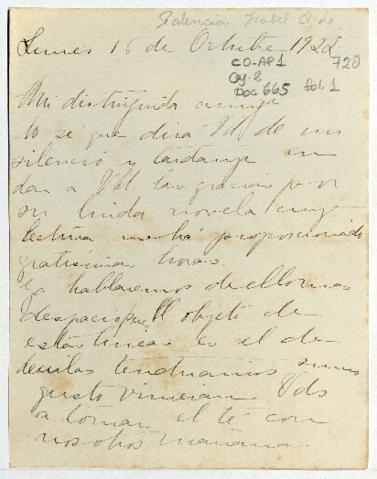 Palencia, Isabel O. de
Lunes 16 de Octubre 1922
CO-AP1
720
Cj. 2
Doc 665
fol. 1
Mi distinguida amiga
No sé que dirá Vd. de mi
silencio y tardanza en
dar a Vd las gracias por
su linda novela cuya
lectura me há proporcionado
gratisimas horas.
Ya hablaremos de ello mas
despacio pues el objeto de
estas lineas es el de
decirles tendriamos sumo
gusto vinieran Vds
a tomar el té con
nosotros mañana